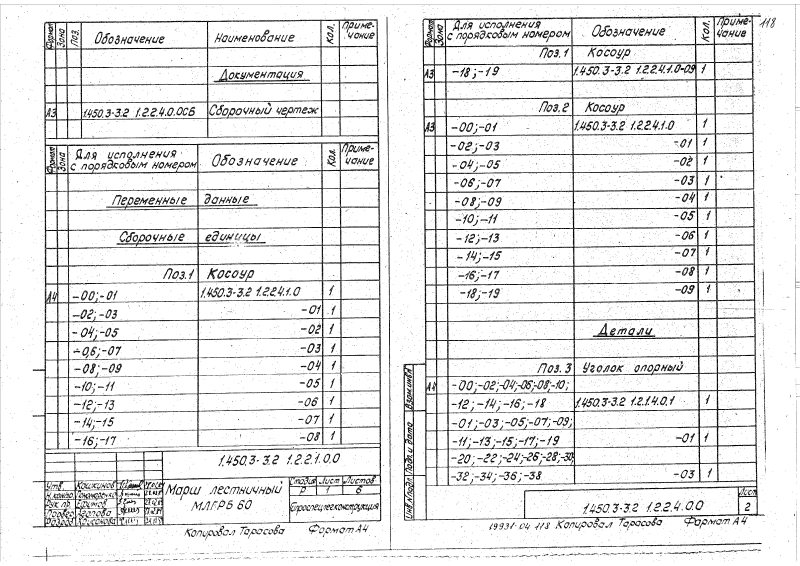 Формат Зона Поз. Обозначение Наименование Кол. Приме-чание
Документация
А3 1.450.3-3.2 1.2.2.4.0.0СБ Сборочный чертеж
Формат Зона Для исполнения с порядковым номером Обозначение Кол. Приме-чание
Переменные данные
Сборочные единицы
Поз.1 Косоур
А4 -00;-01 1.450.3-3.2 1.2.2.4.1.0 1
-02;-03 -01 1
-04;-05 -02 1
-0,6;-07 -03 1
-08;-09 -04 1
-10;-11 -05 1
-12;-13 -06 1
-14;-15 -07 1
-16;-17 -08 1
1.450.3-3.2 1.2.2.1.0.0
Утв. Кошкинов
Н.контр.
Рук.пр. Ефимов
Провер. Агапова
Разраб.
Марш лестничный
МЛГРБ 60
Стадия Лист Листов
Р 1 6
Стройспецлегконструкция
Копировал Тарасова Формат А4
118
Формат Зона Для исполнения с порядковым номером Обозначение Кол. Приме-чание
Поз.1 Косоур
А3 -18;-19 1.450.3-3.2 1.2.2.4.1.0-09 1
Поз.2 Косоур
А3 -00;-01 1.450.3-3.2 1.2.2.4.1.0 1
-02;-03 -01 1
-04;-05 -02 1
-06;-07 -03 1
-08;-09 -04 1
-10;-11 -05 1
-12;-13 -06 1
-14;-15 -07 1
-16;-17 -08 1
-18;-19 -09 1
Детали
Поз.3 Уголок опорный
А4 -00;-02;-04;-06;-08;-10;
-12;-14;-16;-18 1.450.3-3.2 1.2.1.4.0.1 1
-01;-03;-05;-07;-09;
-11;-13;-15;-17;-19 -01 1
-20;-22;-24;-26;-28;-30;
-32;-34;-36;-38 -03 1
Инв.№ подл. Подп. и дата Взам.инв.№
1.450.3-3.2 1.2.2.4.0.0
Лист
2
19931-04 118 Копировал Тарасова Формат А4